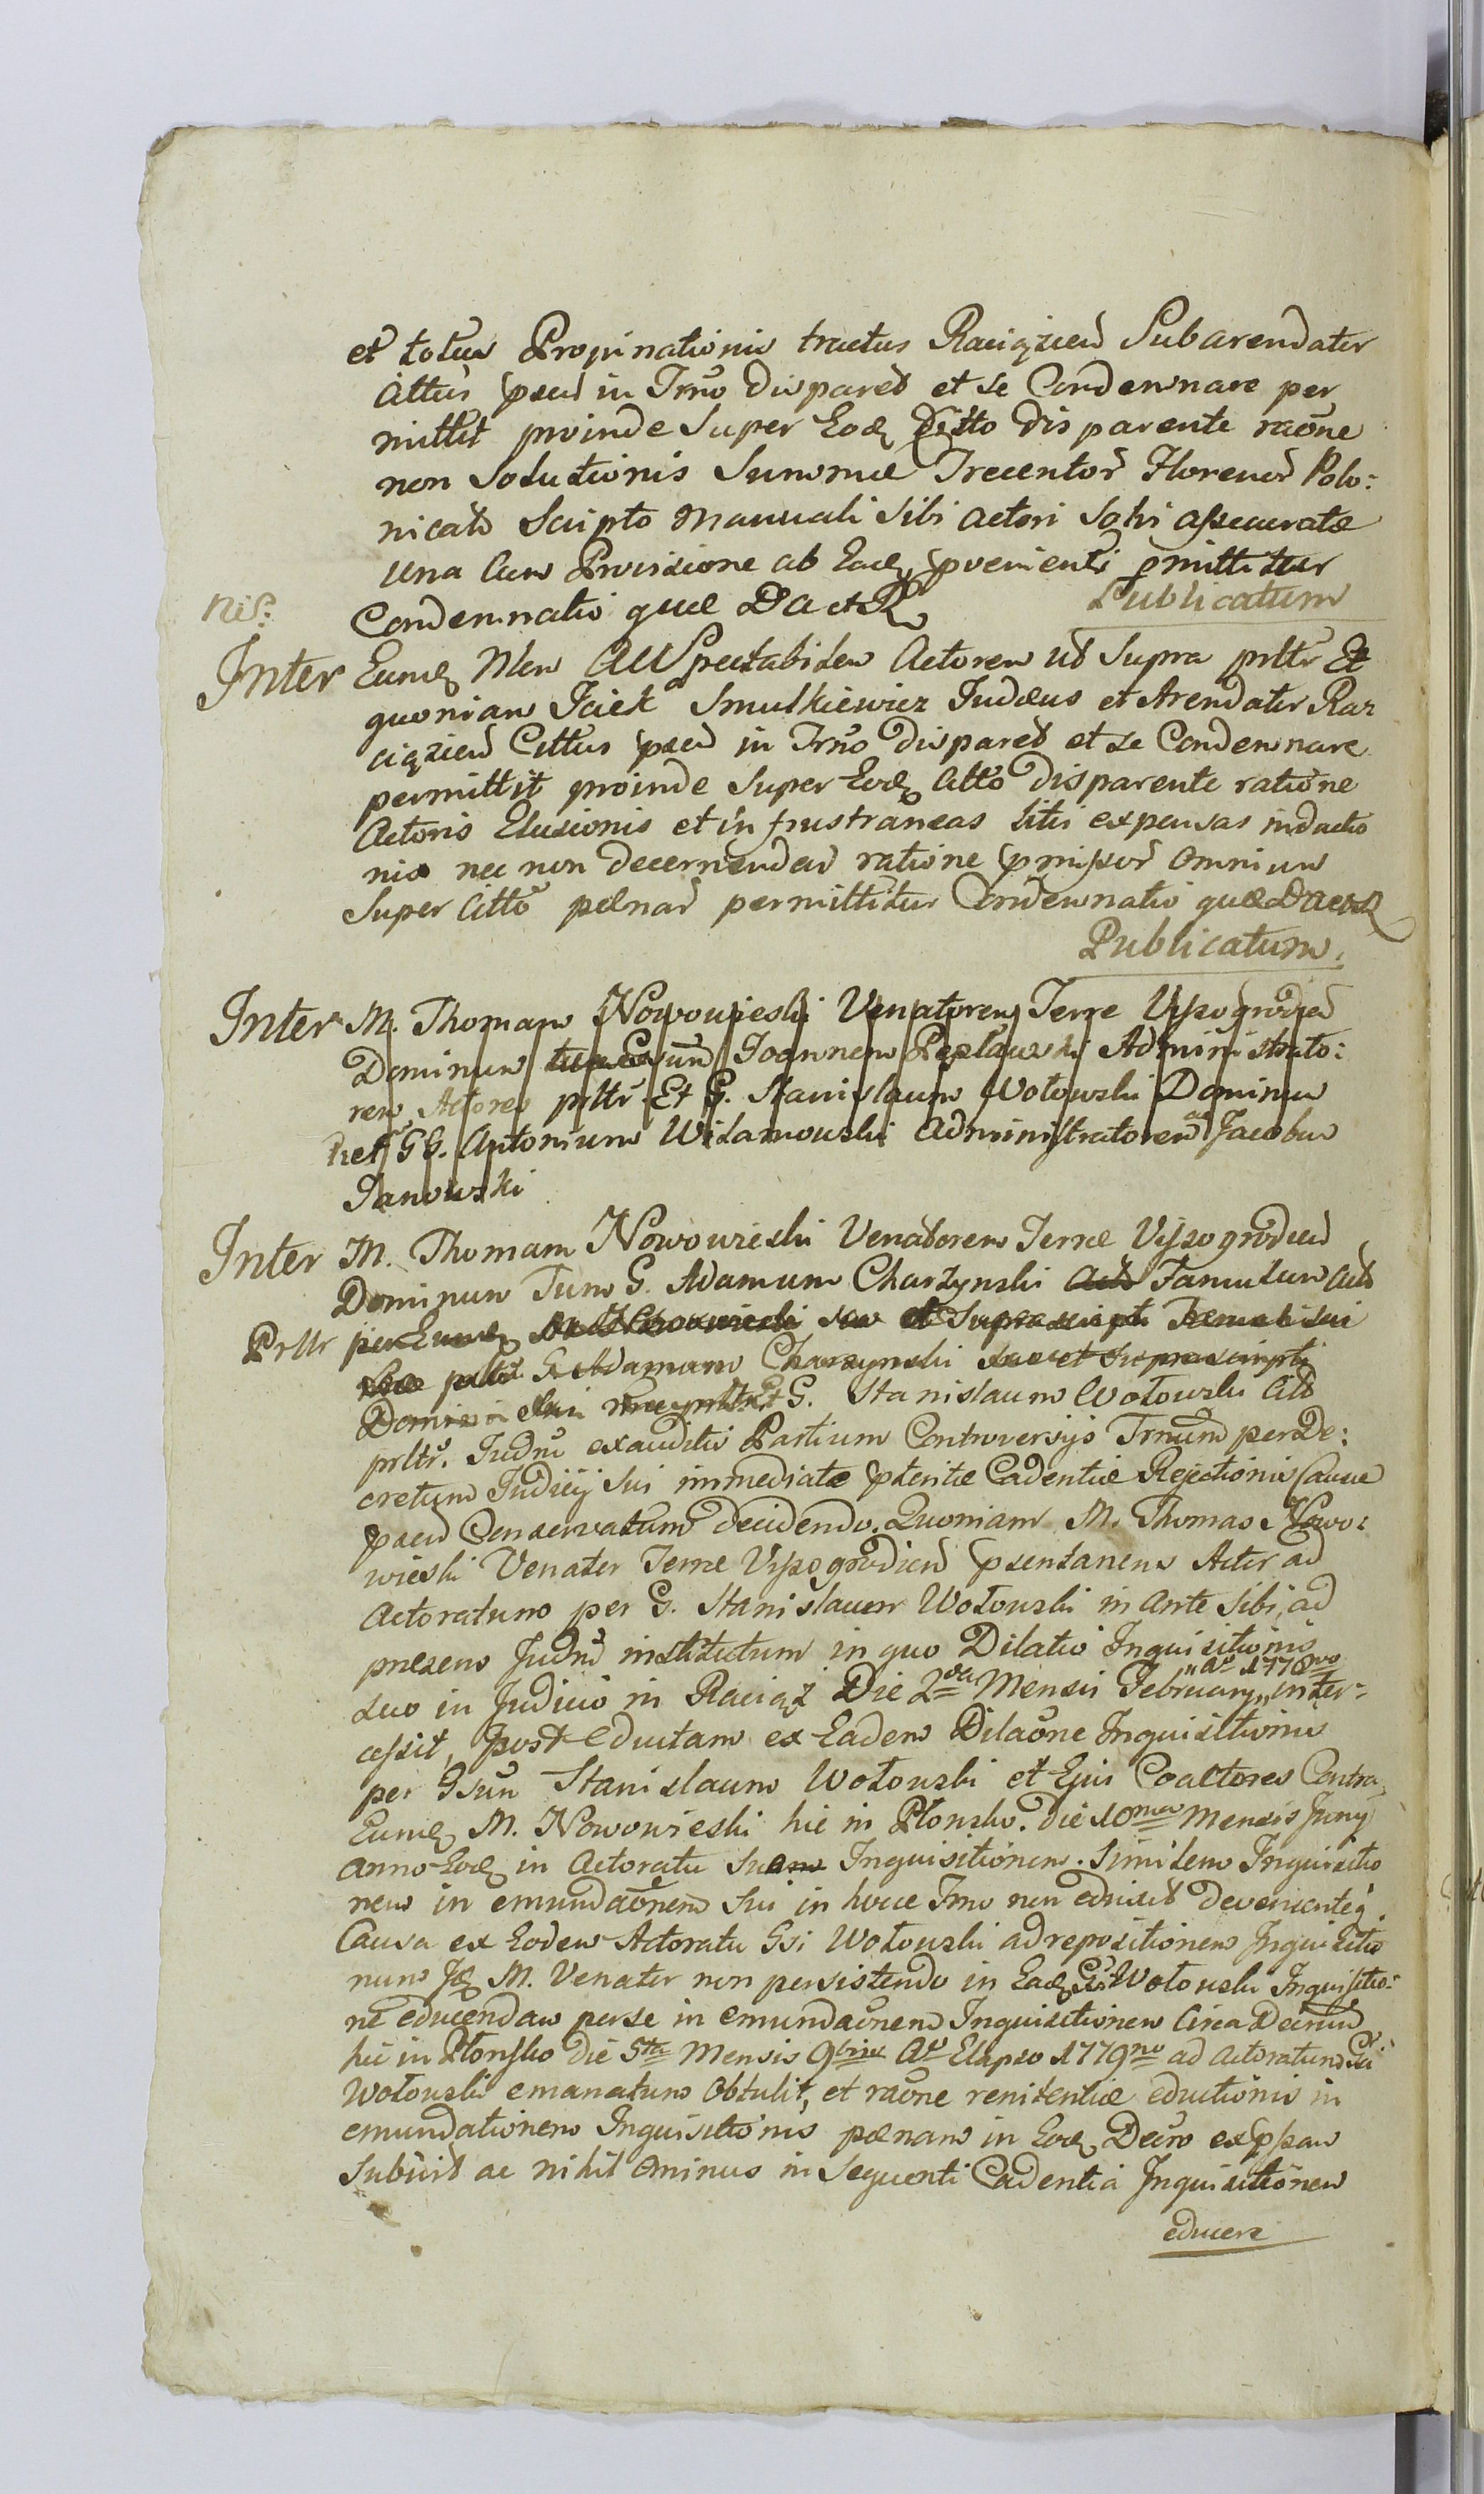 et totus Propinationis tractus Raciązien Subarendator
Cittus psen in Trno disparet et se Condemnare per
mittit proinde Super Eodq Citto disparente raone
non Solutionis Summae Trecentor Florenor Polo:
nical Scripto Manuali Sibi actori solvi assecuratae
una cum Provisione ab Eadq provenienti pmittitur
nis: Condemnatio quae D a et R Publicatum
Inter Eumdq Nlem AC Spectabilem Actorem ut Supra prltr Et
quoniam Jciek Smulkiewicz Judaeus et Arendator Ra
ciązien Cittus psen in Trno disparet et se Condemnare
permittit proinde Super Eodq Citto disparente ratione
Actoris Elusionis et in frustraneas litis expensas inductio
nis nec non decernendar ratione pmissor omnium
Super Citto paenar permittitur Condemnatio quae D a et R
Publicatum.
Inter M. Thomam Nowowieski Venatorem Terrae Wyszogrodien
Dominum Joannem Administrato:
rem Actores prltr Et G. Stanislaum Wołowski Dominum
et GG. Antonium Administratorem ac Jacobum
Janowski
Inter M. Thomam Nowowieski Venatorem Terrae Vyszogrodien
Dominum Tum G. Adamum Charzynski Famulum act
Prltr per Eumdq et Suprascripti
prltr G. Adamum Charzynski suo et suprascripti
Domini sui prltr Et G. Stanislaum Wołowski Citt
prltr. Judm exauditis Partium Controversijs Trnum per De:
cretum Judicij sui immediatae pteritae Cadentiae Rejectionis Causae
psen Conservatum decidendo. Quoniam M. Thomas Nowo:
wieski Venator Terrae Vyszogrodien psentaneus Actor ad
Actoratum per G. Stanislaum Wołowski in ante sibi ad
praesens Judm institutum in quo Dilatio Inquisitionis
suo in Judicio in Raciąż Die 2da Mensis February „Ao 1778vo„ inter:
cessit, post eductam ex Eadem Dilaone Inquisitionis
per Gsum Stanislaum Wołowski et Ejus Coactores Contra
Eumdq M. Nowowieski hic in Płonsko. die 10ma Mensis Juny
anno Eodq in Actoratu Inquisitionem. Similem Inquisitio
nem in emundaonem sui in hocce Trno non eduxit devenienteq
Causa ex Eodem Actoratu Gsi Wołowski ad repositionem Inquisitio
num Jdq M. Venator non persistendo in Eadq Gsi Wołowski Inquisitio:
ne educendam per se in emundaonem Inquisitionem Circa Decrum
hic in Płonsko die 5ta Mensis 9bris Ao Elapso 1779no ad Actoratum Gsi
Wołowski emanatum obtulit, et raone renitentiae eductionis in
emundationem Inquisitionis paenam in Eodq Decro exppsam
Subivit ac nihil ominus in Sequenti Cadentia Inquisitionem
educere